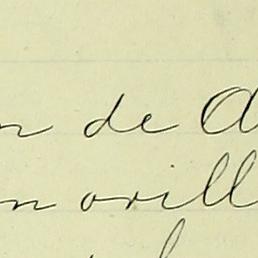 n de A
n orill